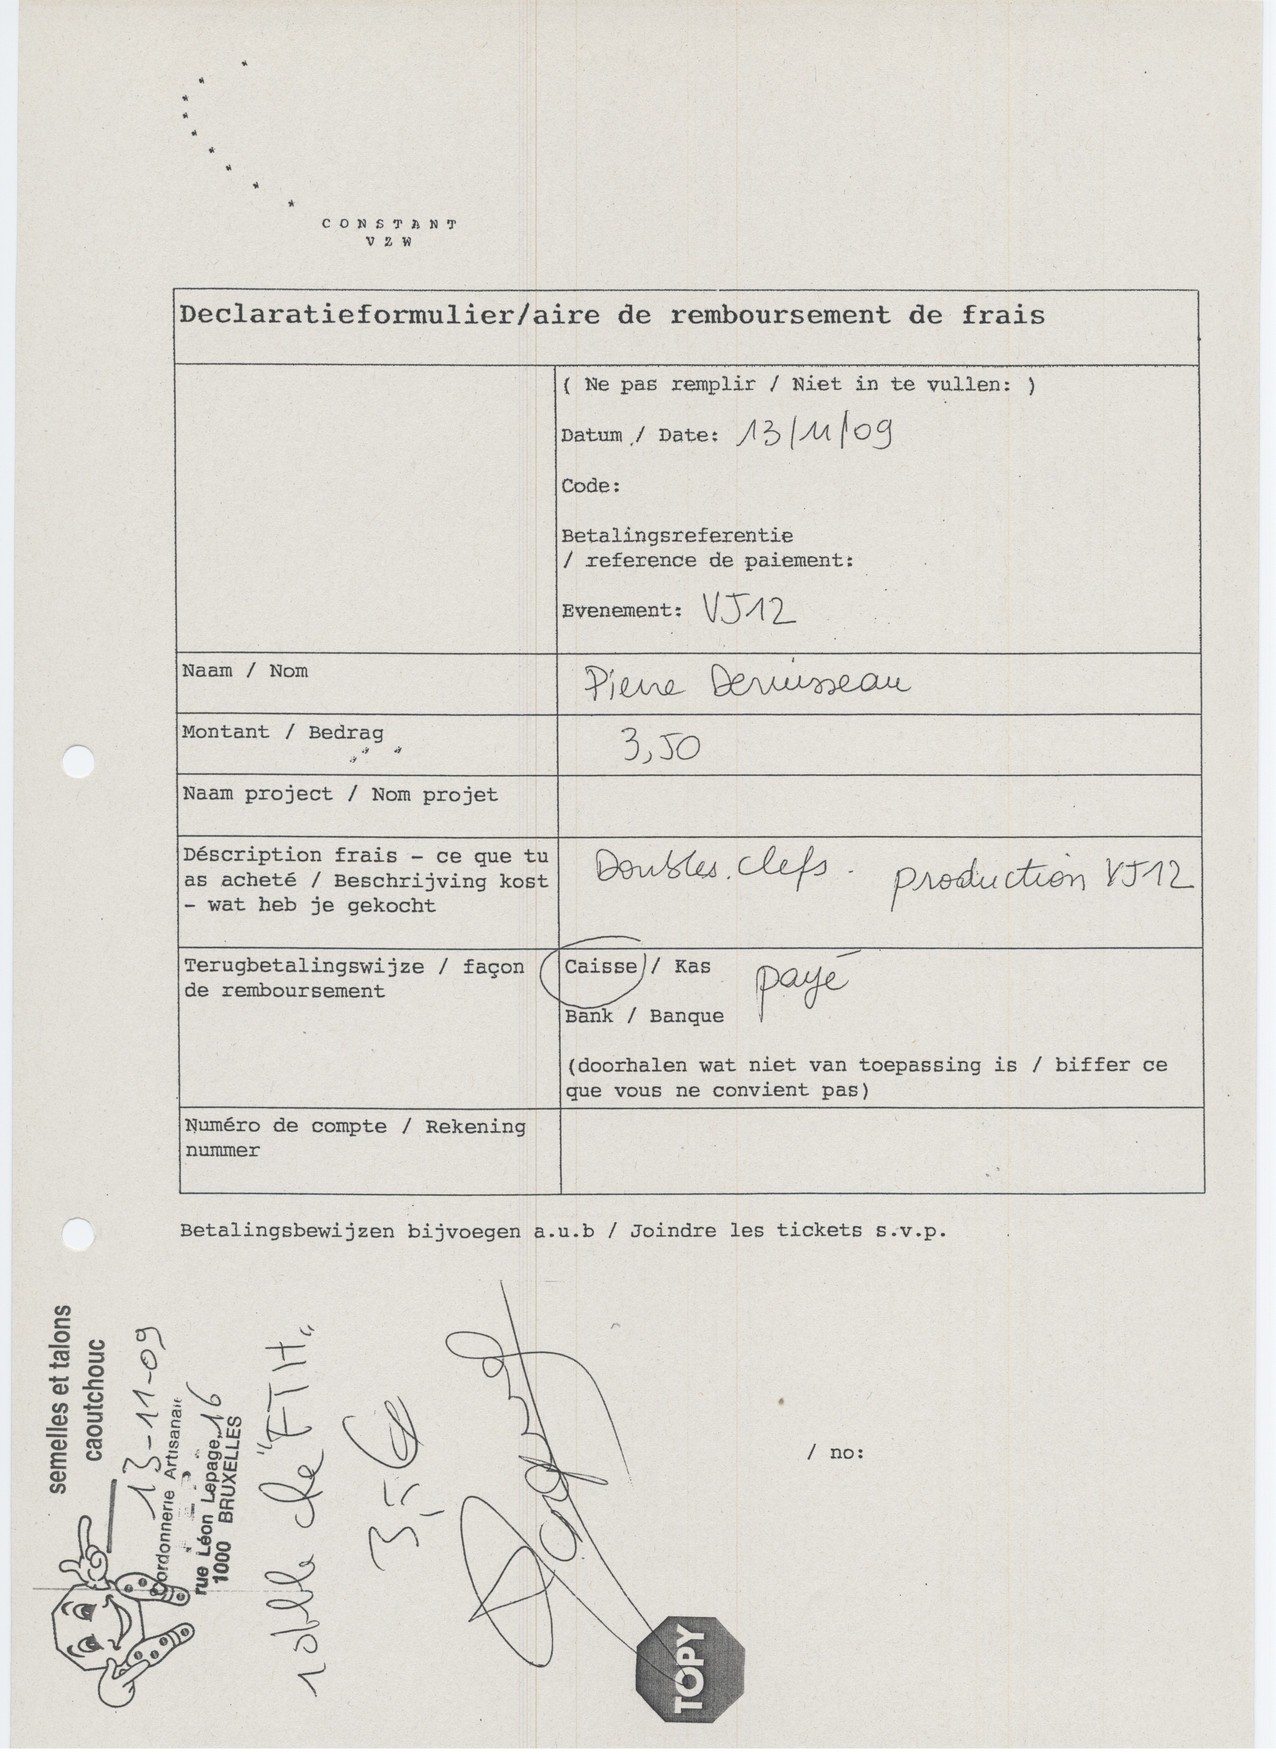 CONSTANT
VZW
Declaratieformulier/aire de remboursement de frais
( Ne pas remplir / Niet in te vullen: )
Datum / Date: 13/11/09
Code:
Betalingsreferentie
/ reference de paiement:
Evenement: VJ12
Naam / Nom
Pierre Deruisseau
Montant / Bedrag
3,50
Naam project / Nom projet
Déscription frais - ce que tu
as acheté / Beschrijving kost
- wat heb je gekocht
Doubles clefs. production VJ12
Terugbetalingswijze / façon
de remboursement
Caisse / Kas payé
Bank / Banque
(doorhalen wat niet van toepassing is / biffer ce
que vous ne convient pas)
Numéro de compte / Rekening
nummer
Betalingsbewijzen bijvoegen a.u.b / Joindre les tickets s.v.p.
/ no:
semelles et talons
caoutchouc
13-11-09
Cordonnerie Artisanale
rue Léon Lepage, 16
1000 BRUXELLES
"FTH"
TOPY